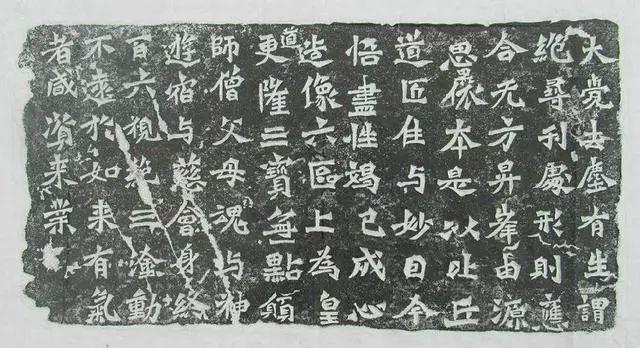 大覺去塵有生謂
絕尋刹處形則應
合无方昇峯由源
思本是以比丘
道匠住与妙因今
悟盡性竭己成心
造像六區上為皇
道更隆三寶無點願
師僧父母魂与神
遊宿与慈會身終
百六視絕三塗動
不遠於如来有氣
者咸資来業